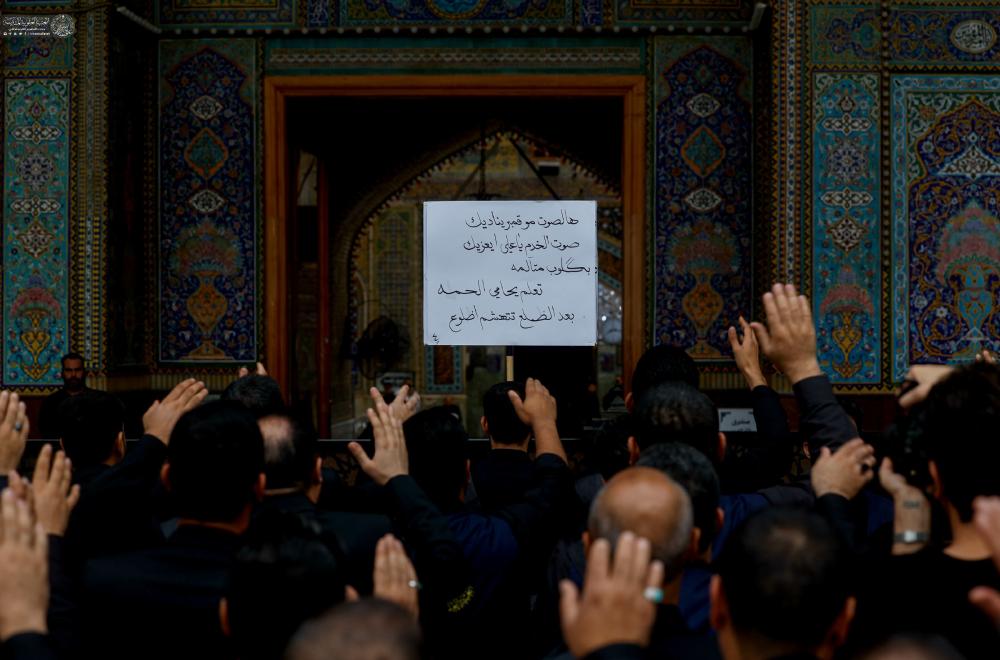 هالصوت مو قمبر يناديك
صوت الخدم ياعلي ايعزيك
بگلوب متالمه
تعلم يحامي الحمه
بعد الضلع تتهشم اضلوع